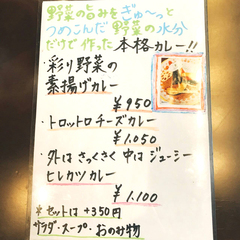 野菜の旨みをぎゅ〜っと
つめこんだ野菜の水分
だけで作った本格カレー!!
・彩り野菜の
素揚げカレー
¥950
・トロットロチーズカレー
¥1.050
・外はさっくさく中はジューシー
ヒレカツカレー
¥1.100
*セットは+350円
サラダ・スープ・おのみ物